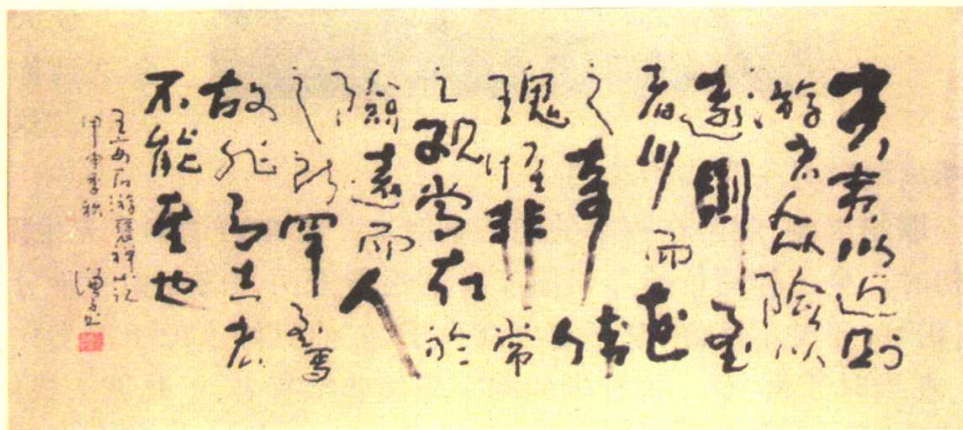 夫夷以近则
游者众险以
远則至
者少而世
之奇偉
瑰怪非常
之观常在於
险远而人
之所罕至焉
故非有志者
不能至也
王安石游褒禅山记
甲申季秋